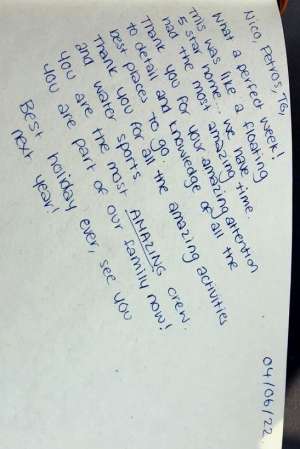 04/06/22
Nico, Petros, TG,
What a perfect week!
This was like a floating
5 star home... we have
had the most amazing time.
Thank you for your amazing attention
to detail and knowledge of all the
best places to go.
Thank you for all the amazing activities
and water sports
You are the most AMAZING crew.
You are part of our family now!
Best holiday ever, see you
next year!